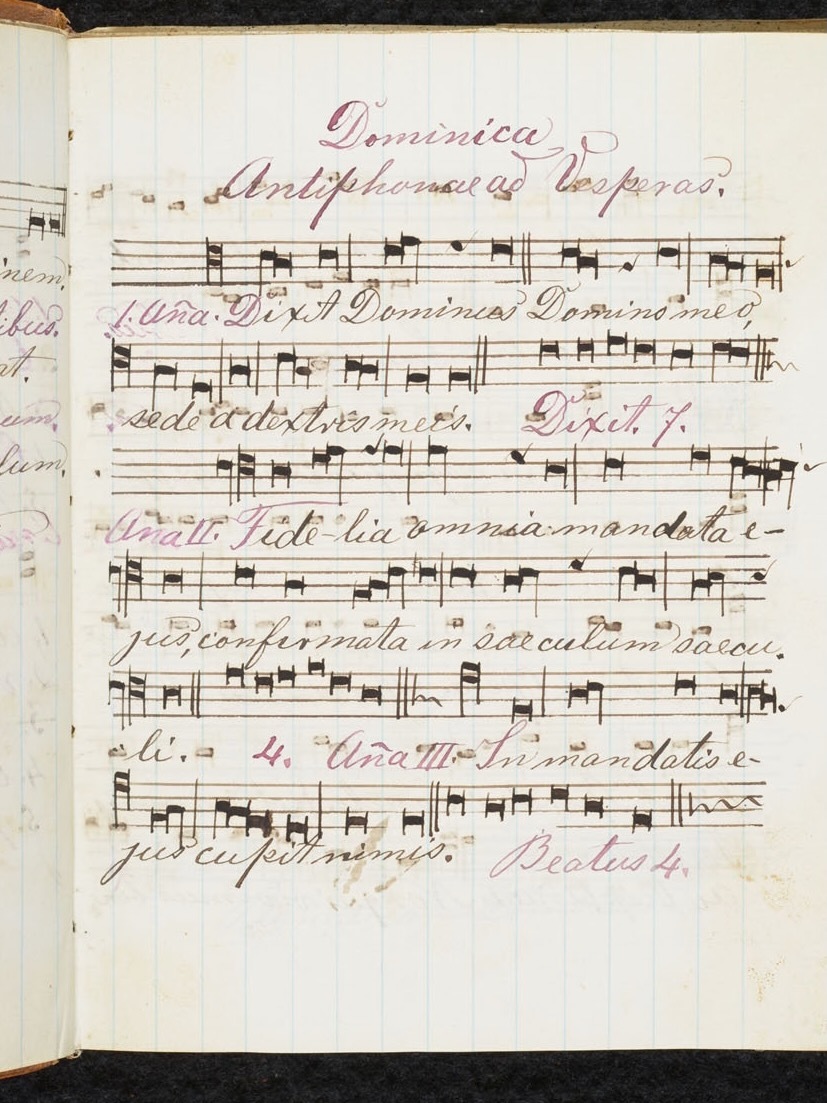 inem.
ibus.
at.
um.
lum.
Dominica
Antiphonae ad Vesperas.
1. Aña. Dixit Dominus Domino meo,
sede a dextris meis. Dixit. 7.
Ana II. Fide-lia omnia mandata e-
jus, confirmata in saeculum saecu.
li. 4. Aña III. In mandatis e-
jus cupit nimis. Beatus 4.